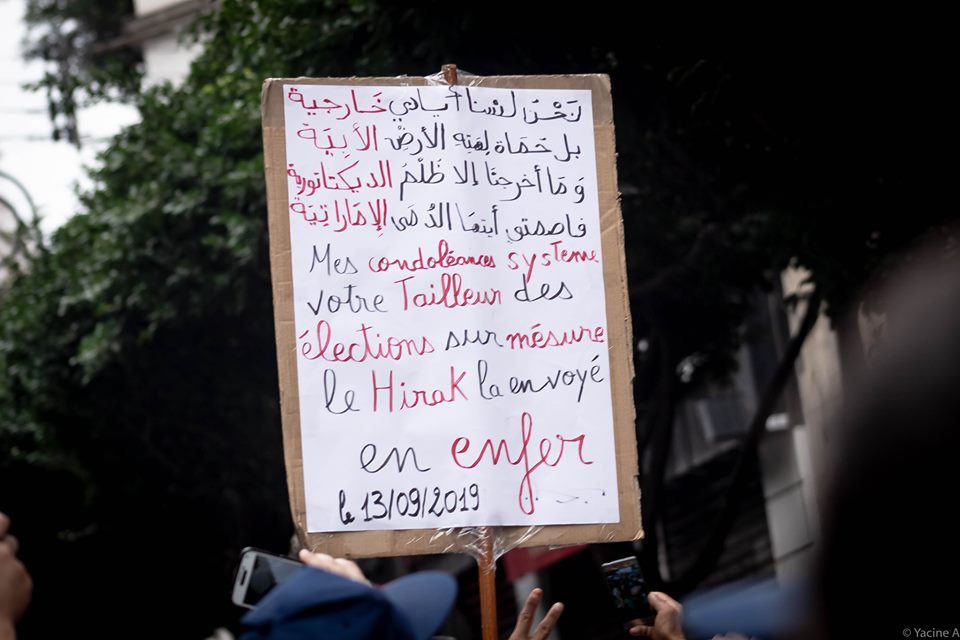 نَحْنُ لسنا أيادي خَارجية
بل حُمَاة لِهَذِهِ الأرضْ الأبِيَة
وَ مَا أخرجنَا إلا ظُلْمَ الديكتاتورية
فاصمتي أيتها الدُمَى الإمَارَاتِيَة
Mes condoléances système
votre Tailleur des
élections sur mésure
le Hirak la envoyé
en enfer
le 13/09/2019
© Yacine A